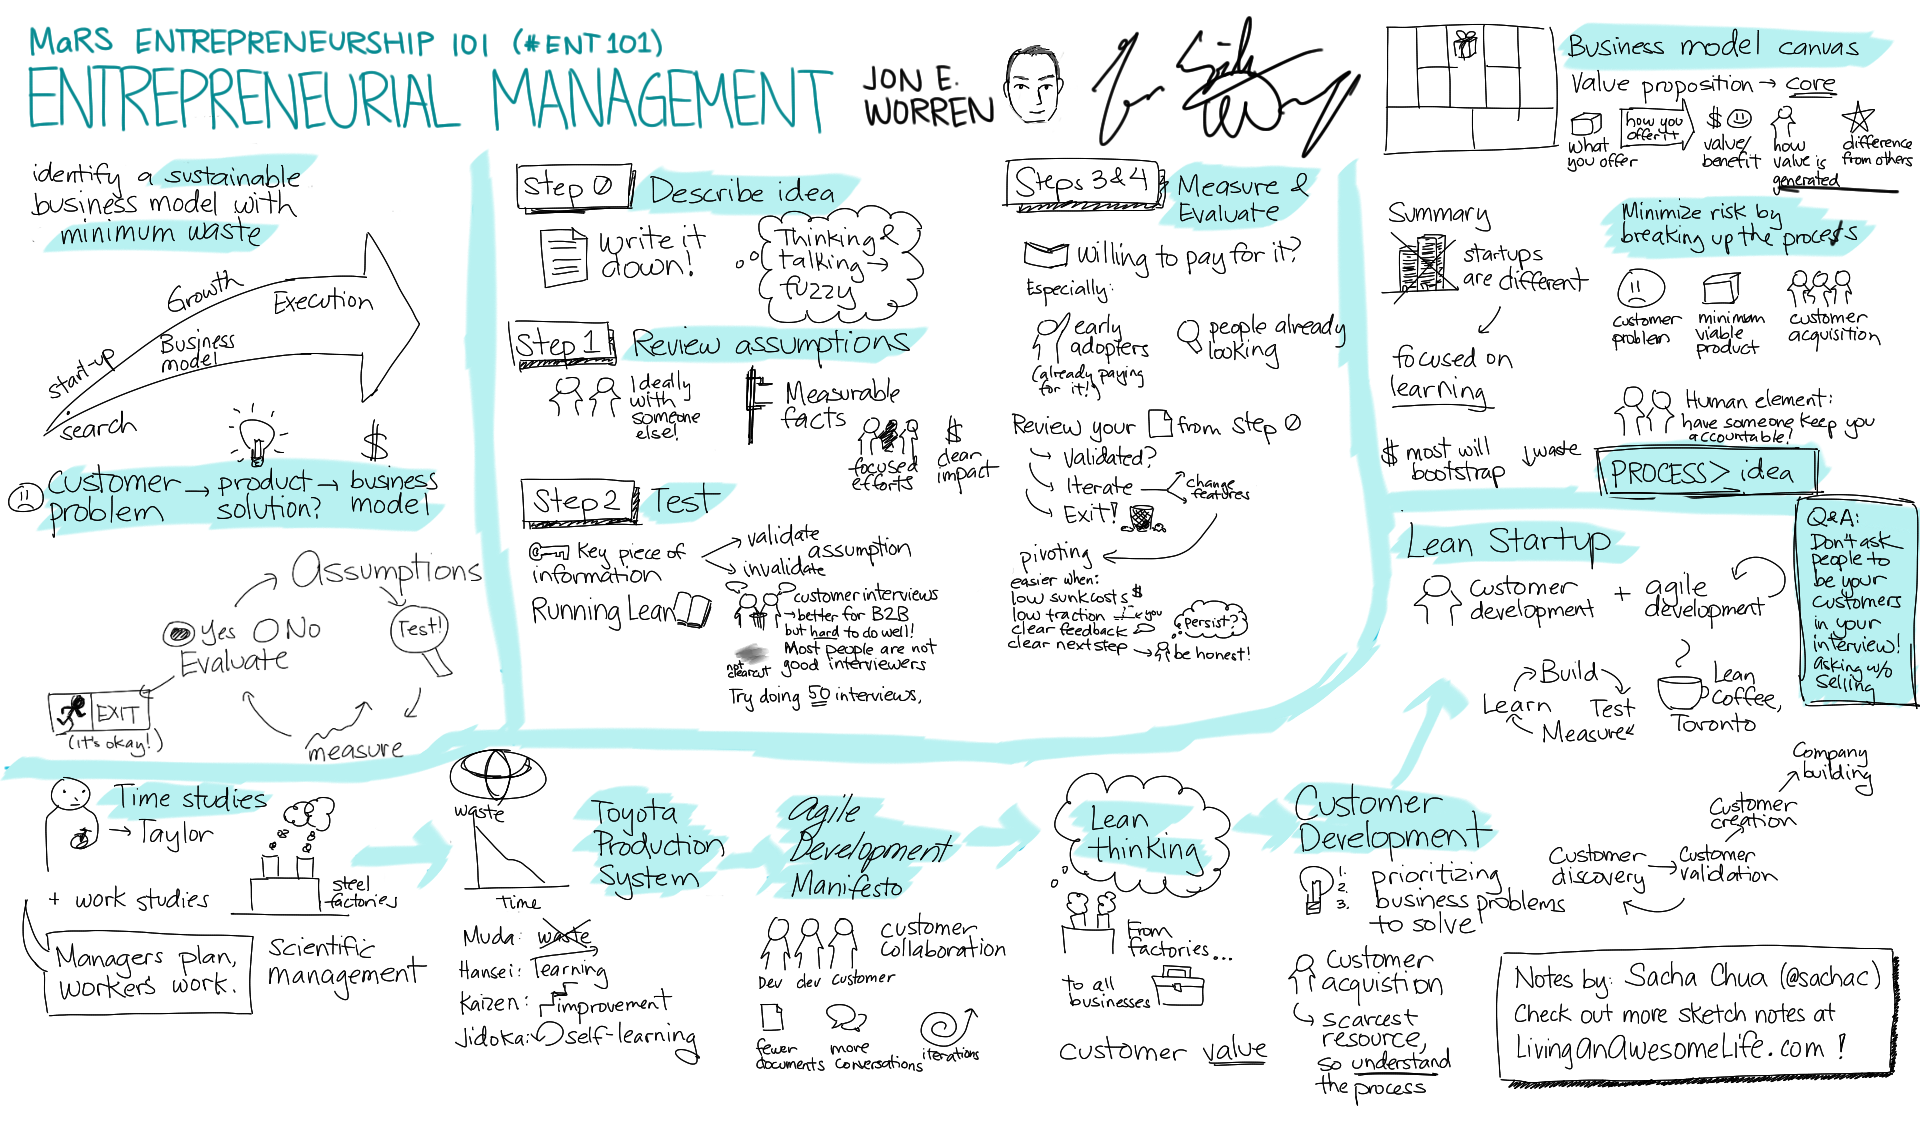 MaRS ENTREPRENEURSHIP 101 (#ENT101)
ENTREPRENEURIAL MANAGEMENT
JON E.
WORREN
identify a sustainable
business model with
minimum waste
Growth
Execution
start-up
Business
model
search
$
Customer
problem
product
solution?
business
model
Assumptions
Test!
measure
Yes No
Evaluate
EXIT
(it's okay!)
Step 0
Describe idea
Write it
down!
Thinking &
talking →
fuzzy
Step 1
Review assumptions
Ideally
with
someone
else!
Measurable
facts
focused
efforts
$
clear
impact
Step 2
Test
Key piece of
information
validate
assumption
invalidate
Running Lean
customer interviews
→ better for B2B
but hard to do well!
Most people are not
good interviewers
not
clearcut
Try doing 50 interviews.
Steps 3 & 4
Measure &
Evaluate
Willing to pay for it?
Especially:
early
adopters
(already paying
for it!)
people already
looking
Review your from step 0
Validated?
Iterate
change
features
Exit!
pivoting
easier when:
low sunk costs $
low traction you
clear feedback
clear next step
persist?
be honest!
Business model canvas
Value proposition → core
what
you offer
how you
offer it
$
value/
benefit
how
value is
generated
difference
from others
Summary
startups
are different
focused on
learning
$ most will
bootstrap
↓waste
Minimize risk by
breaking up the process
customer
problem
minimum
viable
product
customer
acquisition
Human element:
have someone keep you
accountable!
PROCESS > idea
Lean Startup
Customer
development
+
agile
development
Build
Test
Measure
Learn
Lean
Coffee,
Toronto
Q&A:
Don't ask
people to
be your
customers
in your
interview!
asking w/o
selling
Time studies
→ Taylor
+ work studies
steel
factories
Managers plan,
workers work.
Scientific
management
waste
Time
Toyota
Production
System
Muda: waste
Hansei: learning
Kaizen: improvement
Jidoka: self-learning
Agile
Development
Manifesto
Dev dev customer
customer
collaboration
fewer
documents
more
conversations
iterations
Lean
thinking
From
factories...
to all
businesses
customer value
Customer
Development
1.
2.
3.
prioritizing
business problems
to solve
Customer
acquistion
scarcest
resource,
so understand
the process
Customer
discovery
Customer
validation
Customer
creation
Company
building
Notes by: Sacha Chua (@sachac)
Check out more sketch notes at
LivingAnAwesomeLife.com!